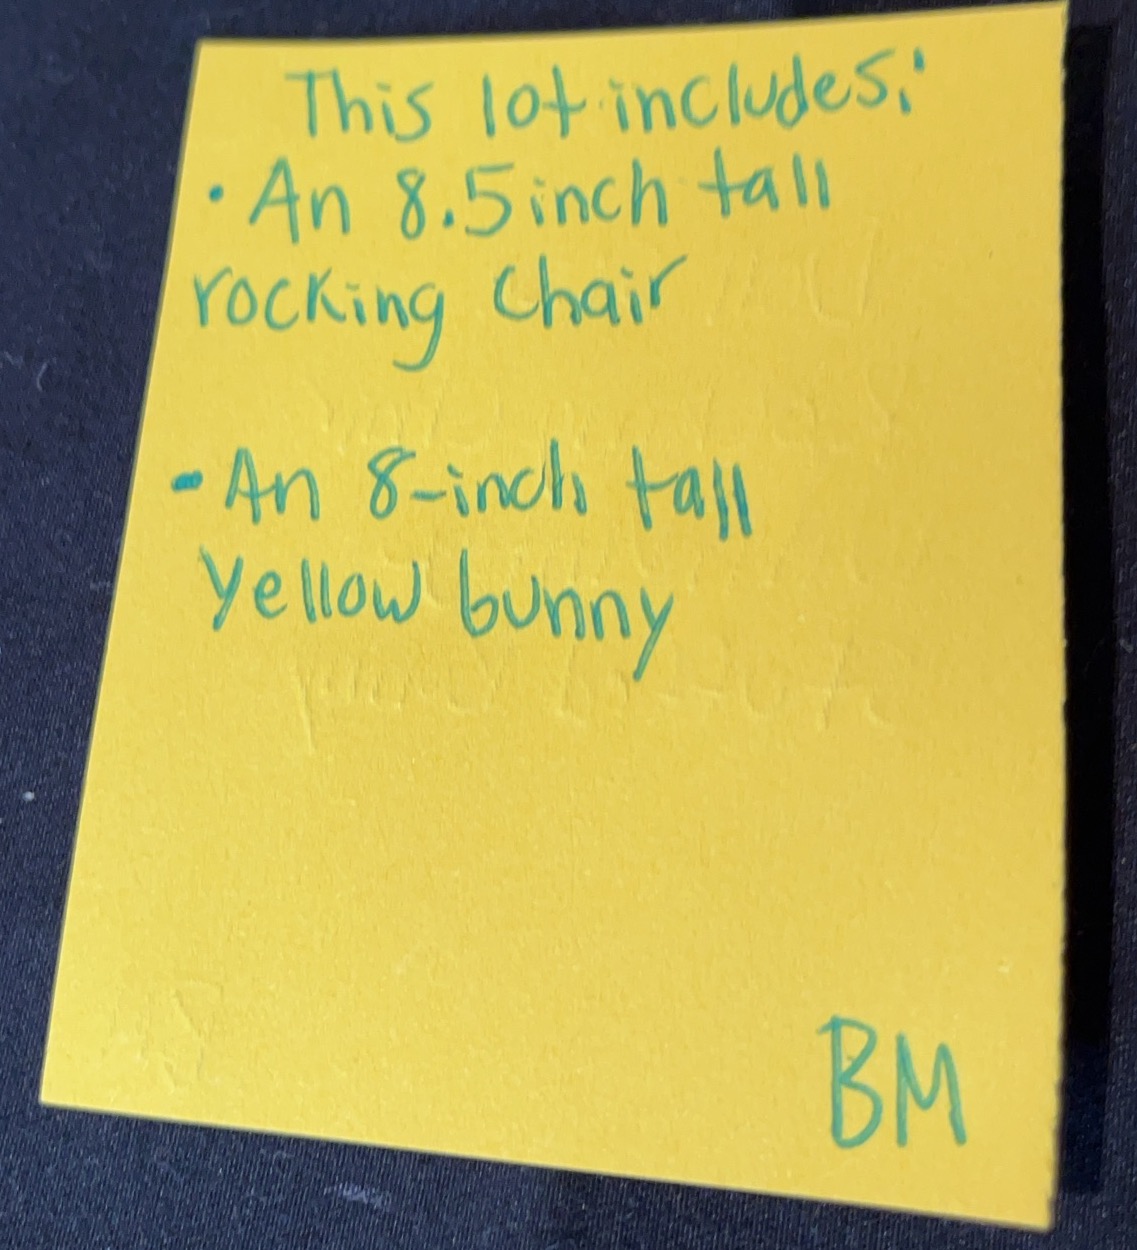 This lot includes:
• An 8.5 inch tall
rocking chair
- An 8-inch tall
yellow bunny
BM